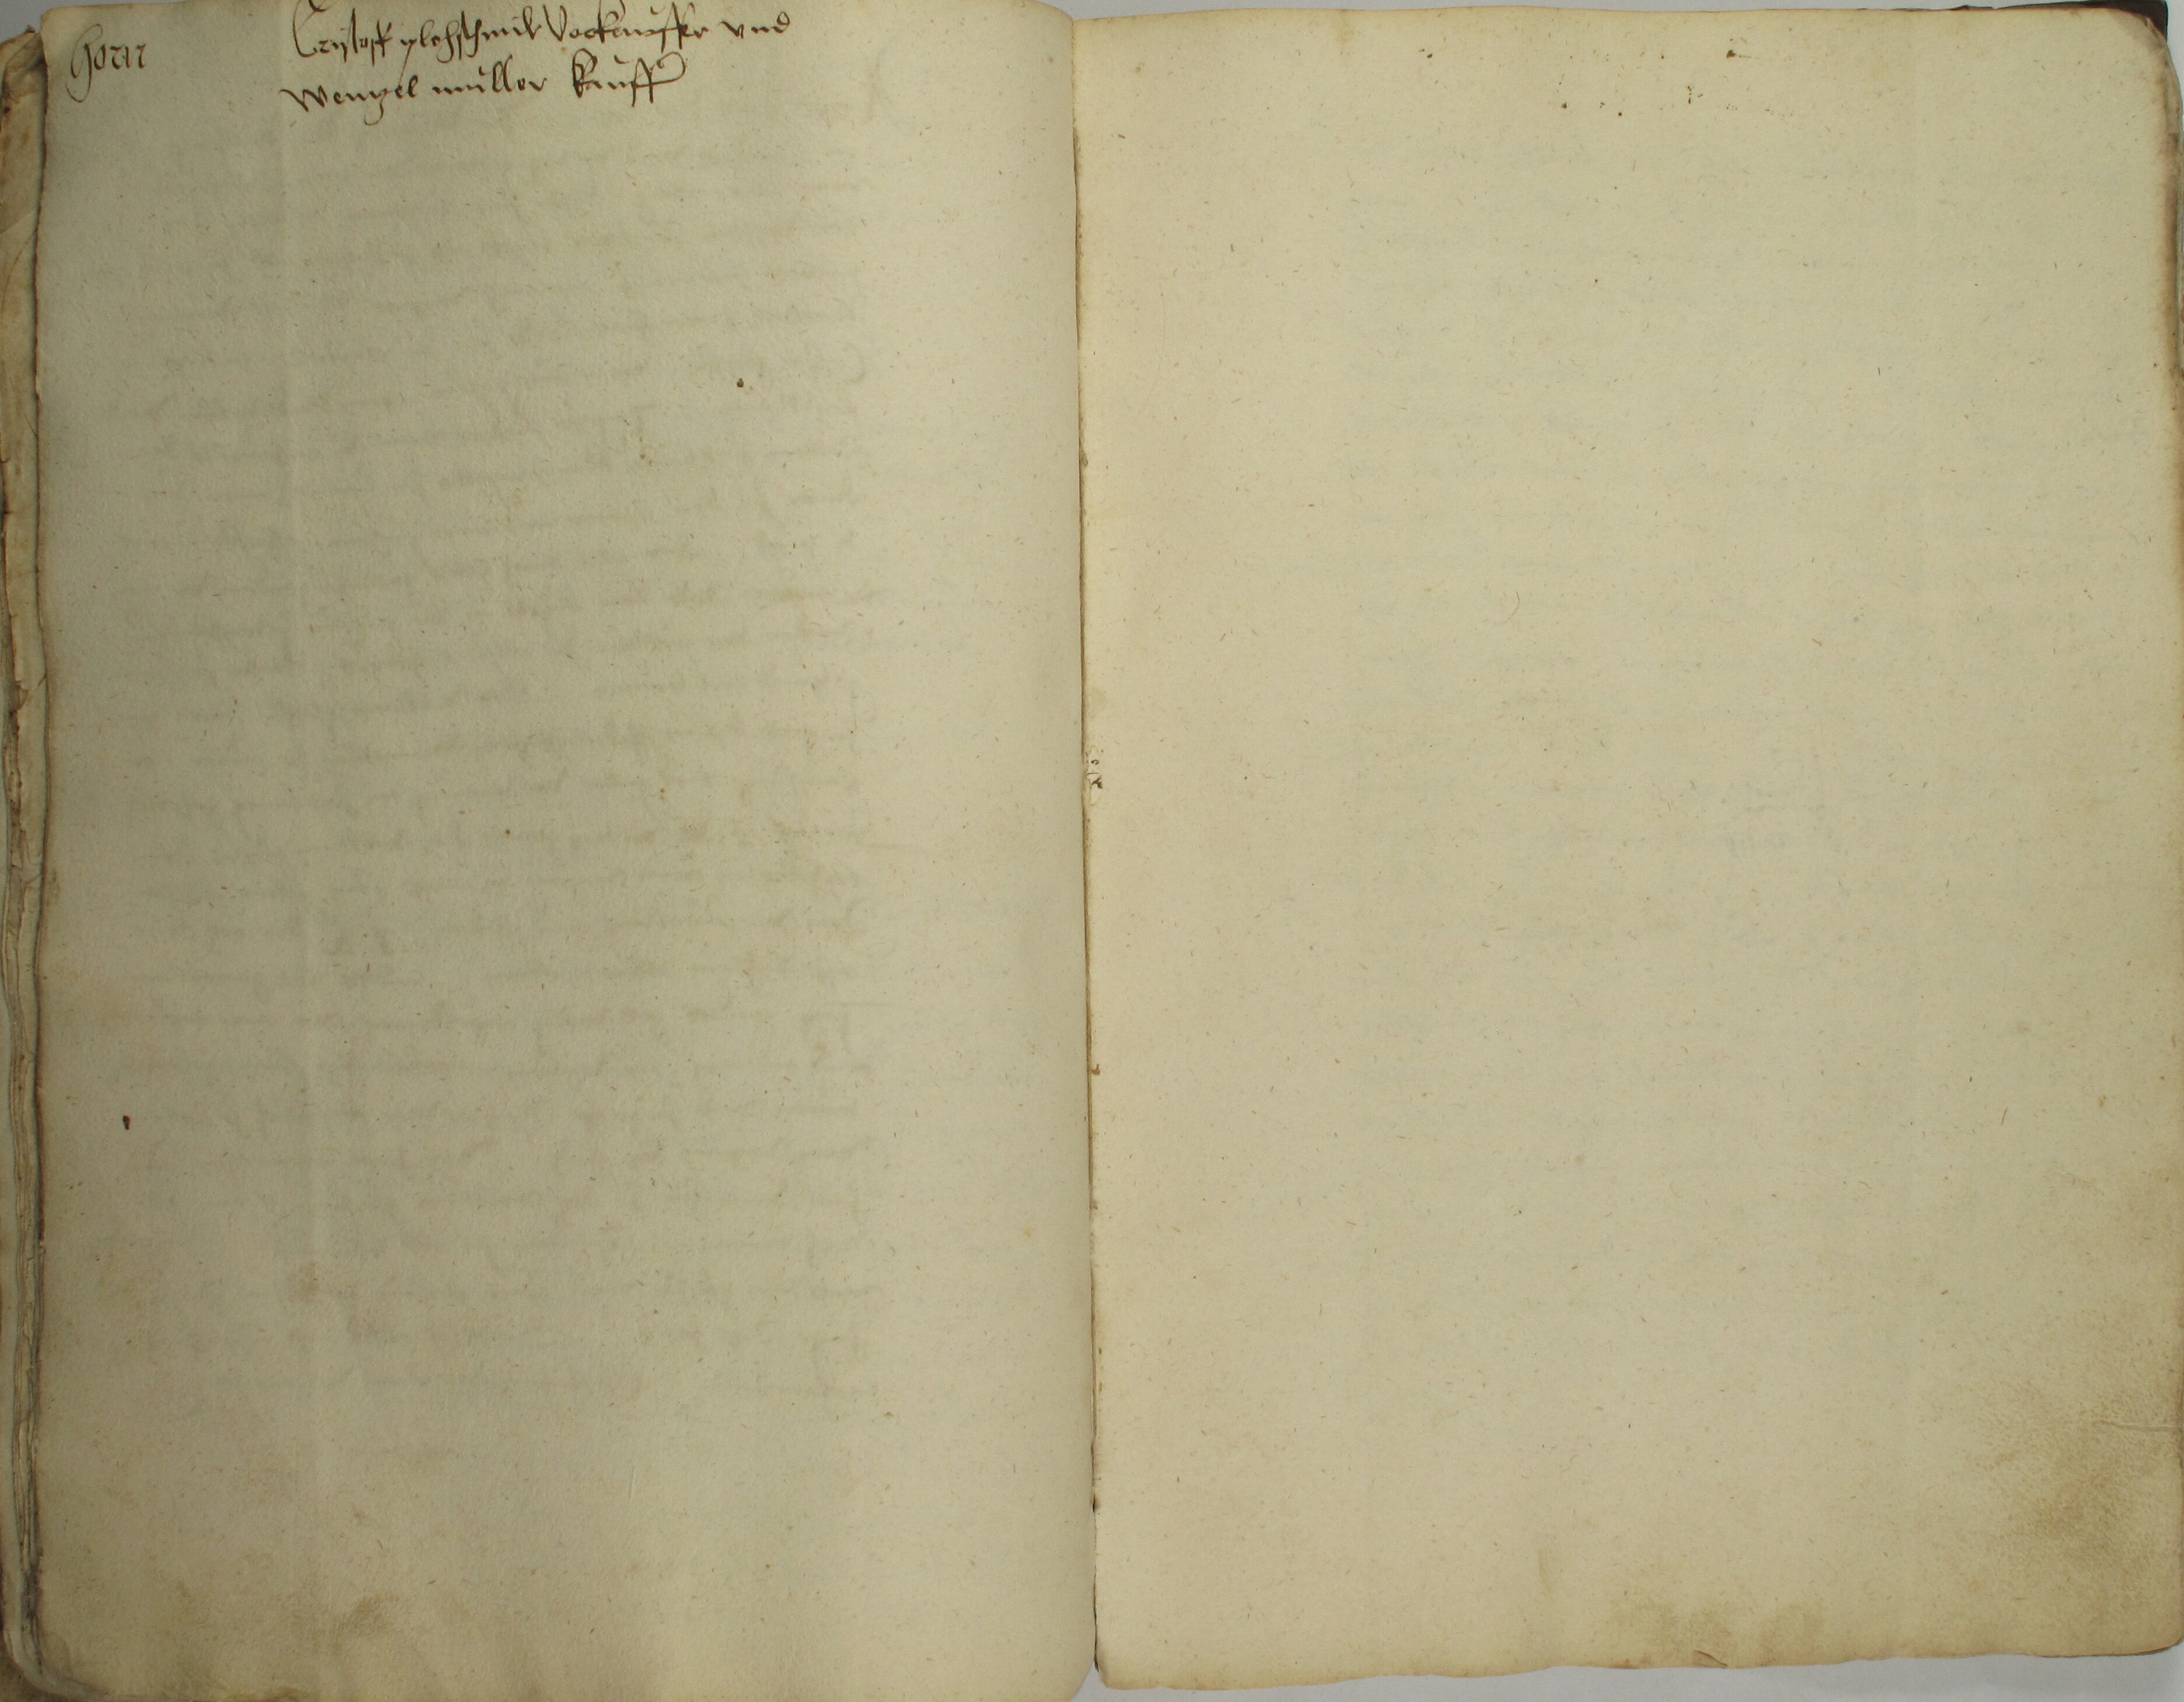 Horn
Cristoff plehschmidt Vorkauffer vnd
Wenzel muller kauffer